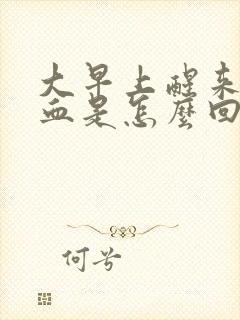 大早上醒来
血是怎麼回
何兮